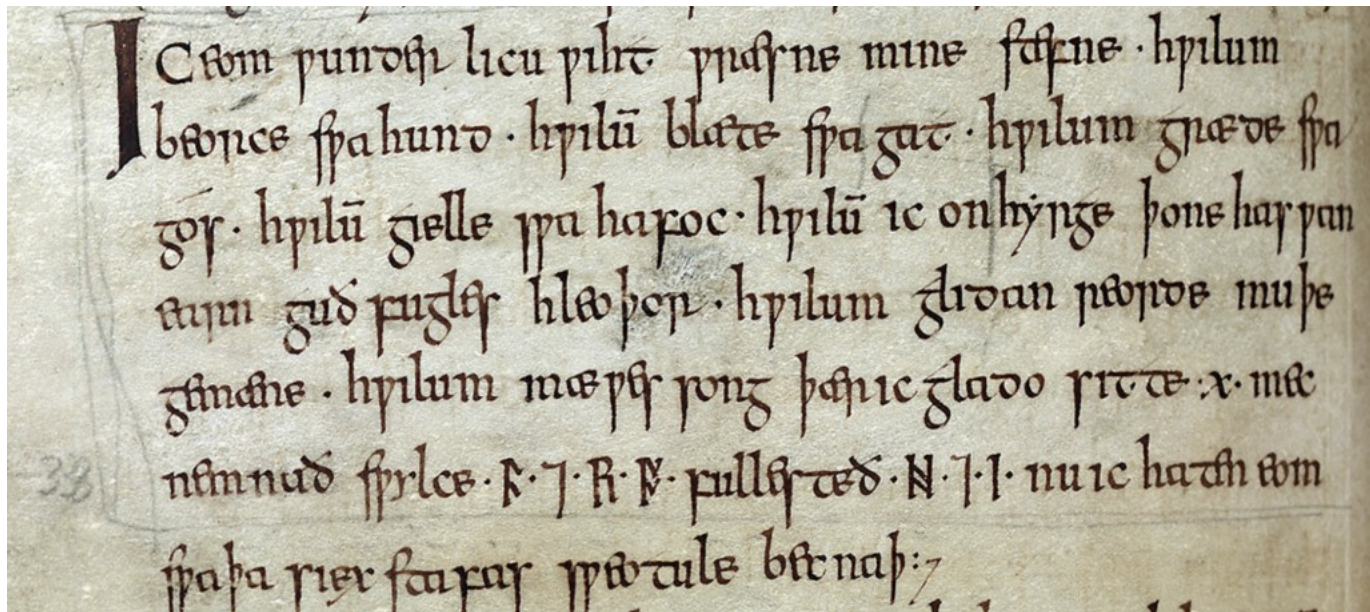 IC eom ƿunder licu ƿiht ƿræsne mine stefne · hƿilum
beorce sƿa hund · hƿilū blæte sƿa gat · hƿilum græde sƿa
gos · hƿilū gielle sƿa hafoc · hƿilū ic onhyrge þone hasƿan
earn guð fugles hleoþor · hƿilum glidan reorde muþe
gemæne · hƿilum mæƿes song þær ic glado sitte :ᚷ· mec
nemnað sƿylce · ᚫ · ⁊ · ᚱ · ᚩ · fullesteð · ᚻ · ⁊ · ᛁ · nu ic haten eom
sƿa þa siex stafas sƿeotule becnaþ :⁊